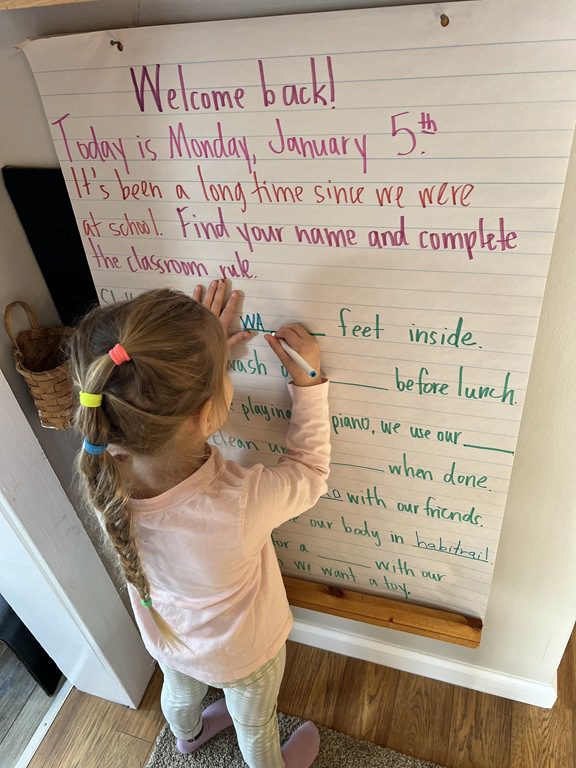 Welcome back!
Today is Monday, January 5th.
It's been a long time since we were
at school. Find your name and complete
the classroom rule.
WA____ feet inside.
wash ____ before lunch.
playing piano, we use our ____
clean ____ when done.
with our friends.
our body in habitrail
for a ____ with our
we want a toy.